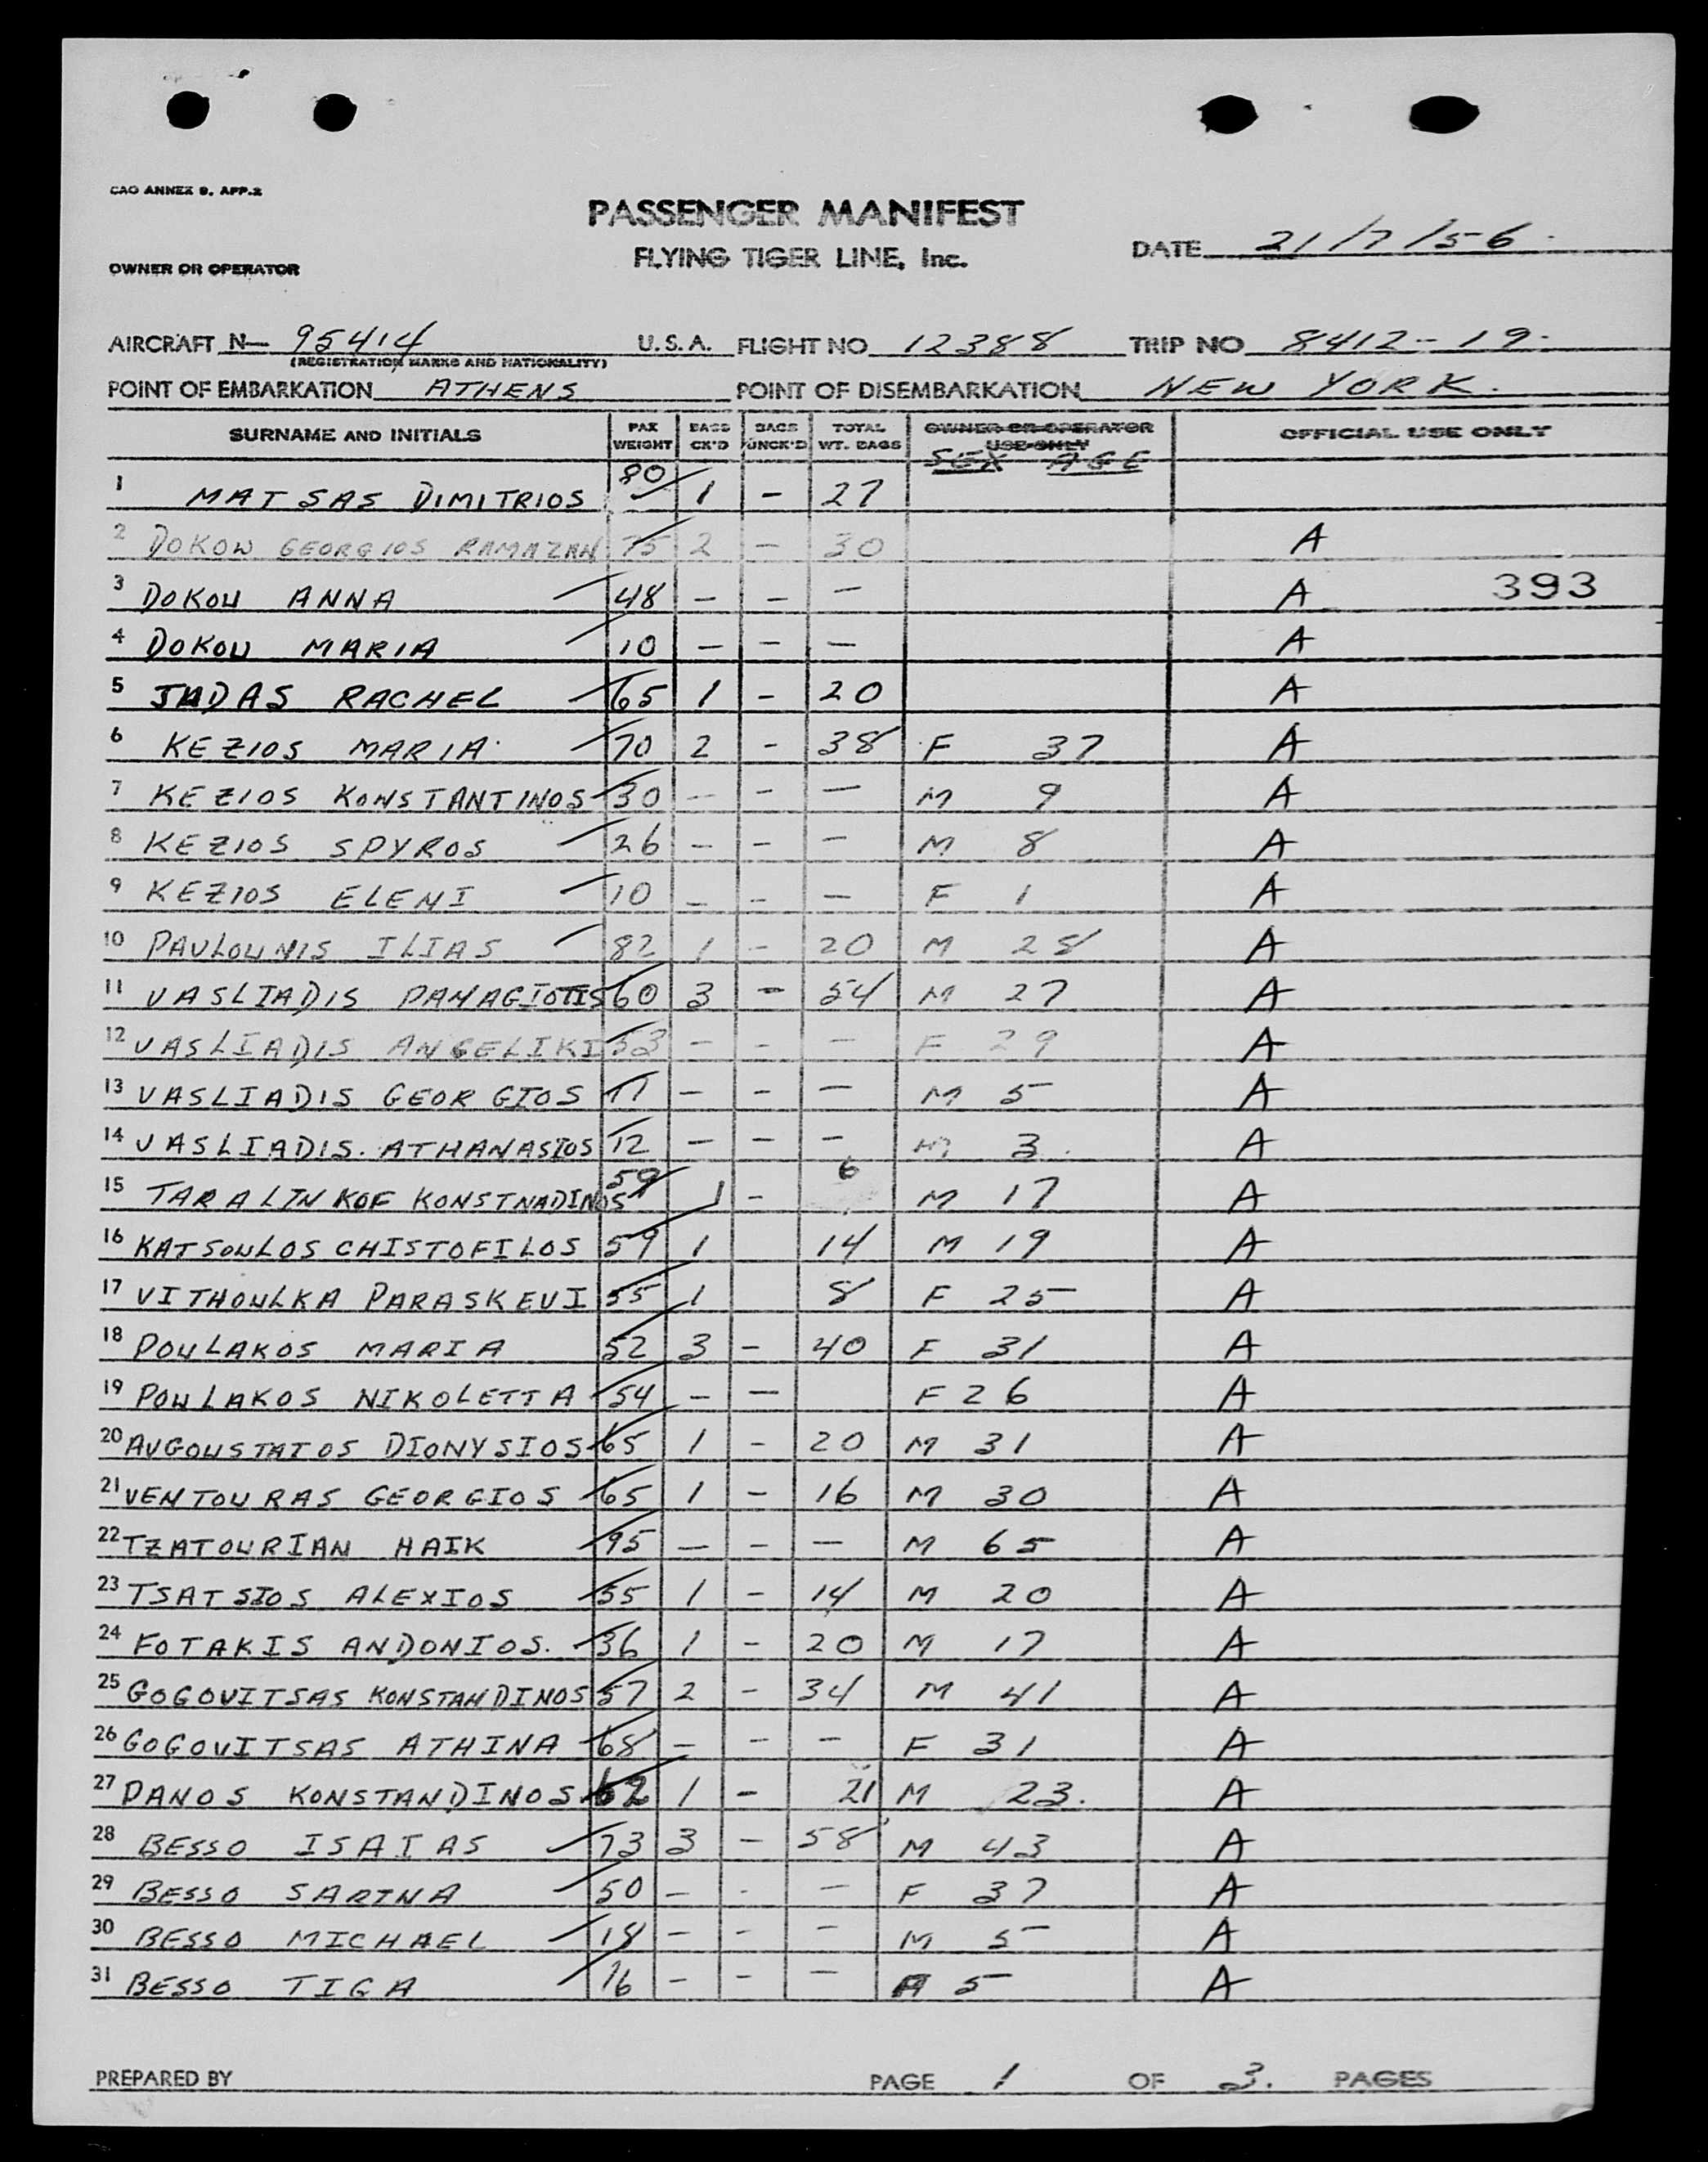 CAO ANNEX 9. APP.2
PASSENGER MANIFEST
FLYING TIGER LINE, Inc.
DATE 21/7/56.
OWNER OR OPERATOR
AIRCRAFT N— 95414 U.S.A. FLIGHT NO 12388 TRIP NO 8412-19.
(REGISTRATION MARKS AND NATIONALITY)
POINT OF EMBARKATION ATHENS POINT OF DISEMBARKATION NEW YORK.
SURNAME AND INITIALS PAX WEIGHT BAGS CK'D BAGS UNCK'D TOTAL WT. BAGS OWNER OR OPERATOR USE ONLY SEX AGE OFFICIAL USE ONLY
1 MATSAS DIMITRIOS 80 1 - 27
2 DOKOU GEORGIOS RAMAZAN 75 2 - 30 A
3 DOKOU ANNA 48 - - - A 393
4 DOKOU MARIA 10 - - - A
5 JUDAS RACHEL 65 1 - 20 A
6 KEZIOS MARIA 70 2 - 38 F 37 A
7 KEZIOS KONSTANTINOS 30 - - - M 9 A
8 KEZIOS SPYROS 26 - - - M 8 A
9 KEZIOS ELENI 10 - - - F 1 A
10 PAVLOUNIS ILIAS 82 1 - 20 M 28 A
11 VASLIADIS PANAGIOTIS 60 3 - 54 M 27 A
12 VASLIADIS ANGELIKI 53 - - - F 29 A
13 VASLIADIS GEORGIOS 11 - - - M 5 A
14 VASLIADIS. ATHANASIOS 12 - - - M 3. A
15 TARALINKOF KONSTNADINOS 59 1 - 6 M 17 A
16 KATSOULOS CHISTOFILOS 59 1 14 M 19 A
17 VITHOULKA PARASKEVI 55 1 8 F 25 A
18 POULAKOS MARIA 52 3 - 40 F 31 A
19 POULAKOS NIKOLETTA 54 - - F 26 A
20 AVGOUSTATOS DIONYSIOS 65 1 - 20 M 31 A
21 VENTOURAS GEORGIOS 65 1 - 16 M 30 A
22 TZATOURIAN HAIK 95 - - - M 65 A
23 TSATSIOS ALEXIOS 55 1 - 14 M 20 A
24 FOTAKIS ANDONIOS. 36 1 - 20 M 17 A
25 GOGOVITSAS KONSTANDINOS 57 2 - 34 M 41 A
26 GOGOVITSAS ATHINA 68 - - - F 31 A
27 PANOS KONSTANDINOS 62 1 - 21 M 23. A
28 BESSO ISAIAS 73 3 - 58 M 43 A
29 BESSO SARINA 50 - - - F 37 A
30 BESSO MICHAEL 18 - - - M 5 A
31 BESSO TIGA 16 - - - 5 A
PREPARED BY PAGE 1 OF 3. PAGES